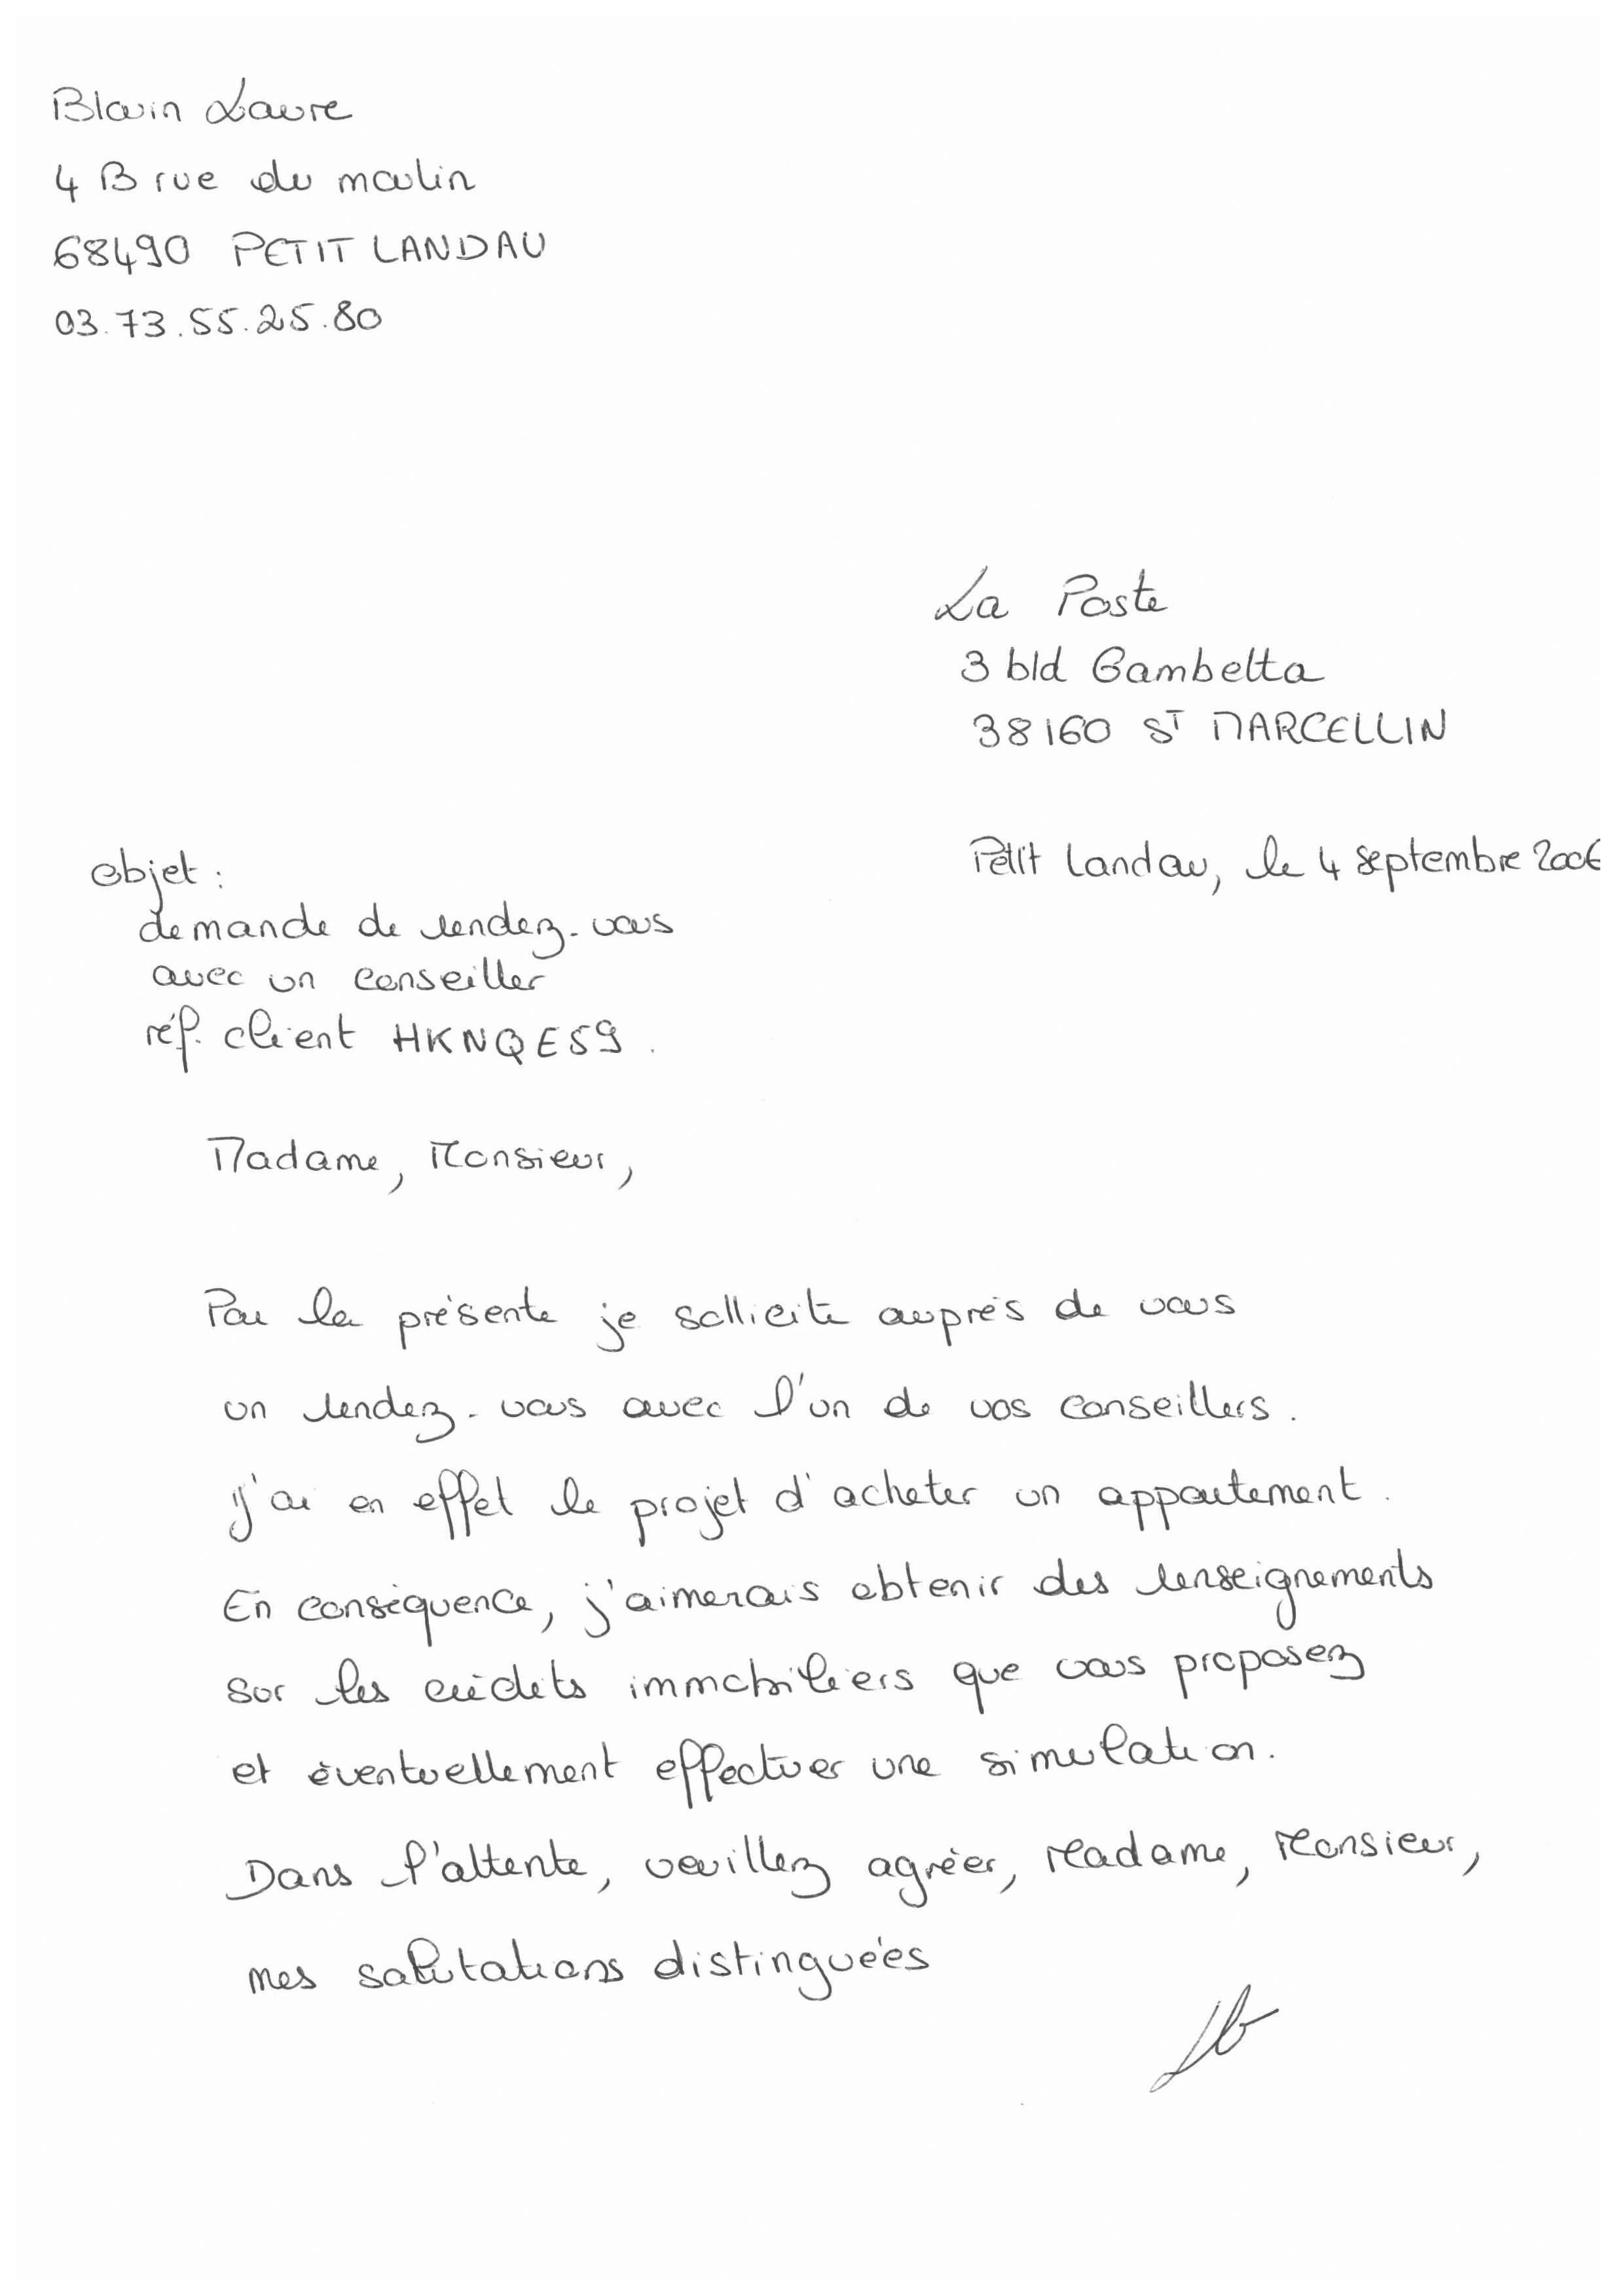 Blain Laure
4 B rue du moulin
68490 PETIT LANDAU
03.73.55.25.80
La Poste
3 bld Gambetta
38160 ST MARCELLIN
Petit Landau, le 4 septembre 2006
objet :
demande de rendez-vous
avec un conseiller
réf. client HKNQE59.
Madame, Monsieur,
Par la présente je sollicite auprès de vous
un rendez-vous avec l'un de vos conseillers.
J'ai en effet le projet d'acheter un appartement.
En conséquence, j'aimerais obtenir des renseignements
sur les crédits immobiliers que vous proposez
et éventuellement effectuer une simulation.
Dans l'attente, veuillez agréer, Madame, Monsieur,
mes salutations distinguées